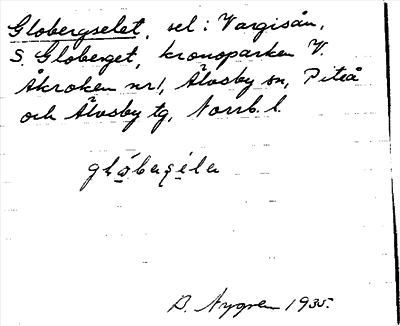 Globergselet, sel i Vargisån,
S. Globerget, kronoparken V.
Åkroken nr 1, Älvsby sn, Piteå
och Älvsby tg, Norrb. l.
D. Nygren 1935.